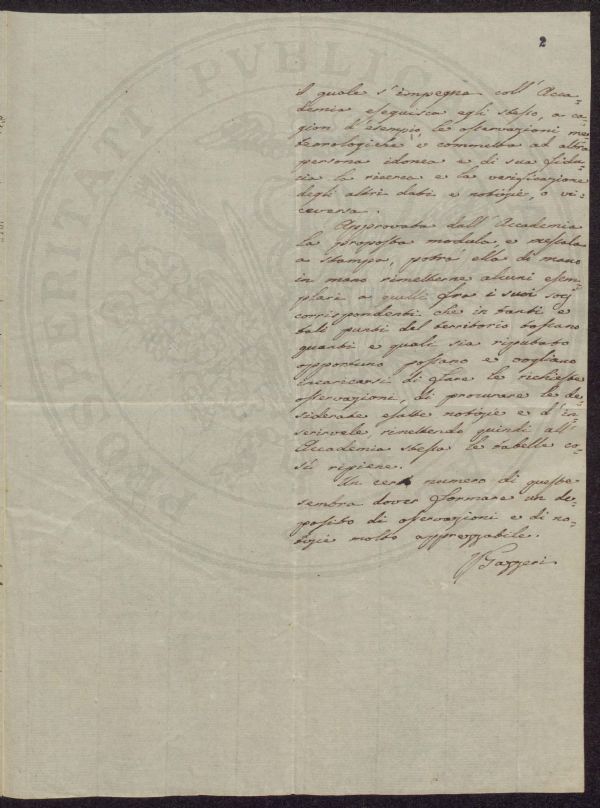 2
il quale s'impegna coll' Acca=
demia eseguisca egli stesso, a ca=
gion d'esempio, le osservazioni me=
teorologiche e commetta ad altra
persona idonea e di sua fidu=
cia la ricerca e la verificazione
degli altri dati e notizie, o vi=
ceversa.
Approvata dall' Accademia
la proposta modula, e messala
a stampa, potrà ella di mano
in mano rimetterne alcuni esem=
plari a quelli fra i suoi socj
corrispondenti che in tanti e
tali punti del territorio toscano
quanti e quali sia reputato
opportuno possano e vogliano
incaricarsi di fare le richieste
osservazioni, di procurare le de=
siderate esatte notizie e d'in=
serirvele, rimettendo quindi all'
Accademia stessa le tabelle co=
sì ripiene.
Un certo numero di queste
sembra dover formare un de=
posito di osservazioni e di no=
tizie molto apprezzabile.
Gazzeri
PVBLICA
SPITATI